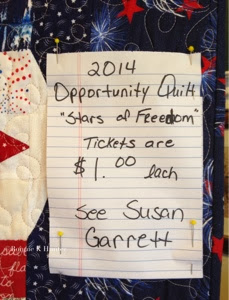 2014
Opportunity Quilt
"Stars of Freedom"
Tickets are
$1.00 each
See Susan
Garrett